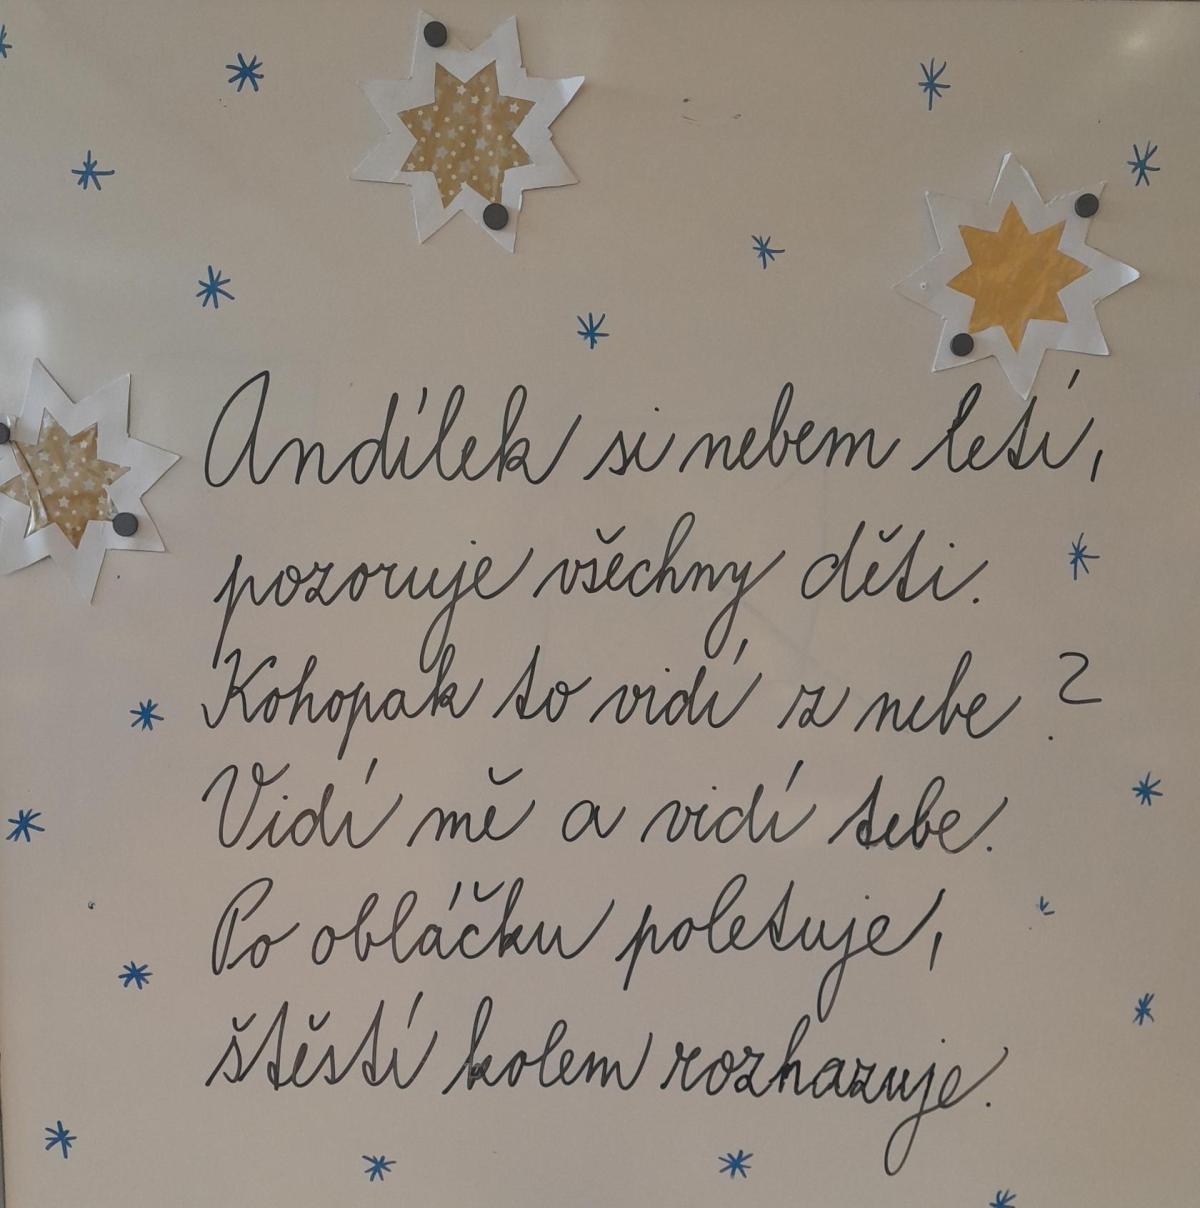 Andílek si nebem letí,
pozoruje všechny děti.
Kohopak to vidí z nebe?
Vidí mě a vidí tebe.
Po obláčku poletuje,
štěstí kolem rozhazuje.